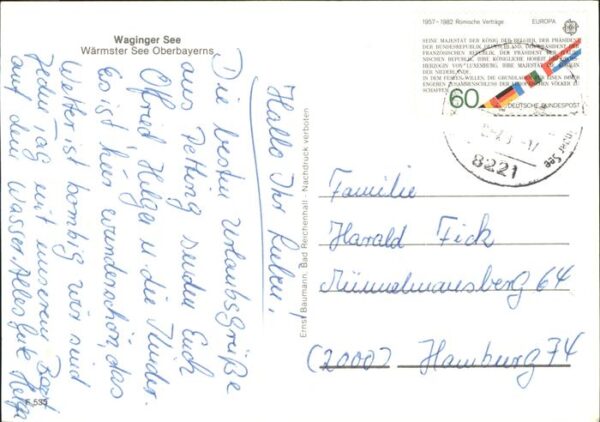 Waginger See
Wärmster See Oberbayerns
Hallo Ihr Lieben!
Die besten Urlaubsgrüße
aus Petting senden Euch
Olfred, Helga u. die Kinder.
Es ist hier wunderschön, das
Wetter ist bombig wir sind
jeden Tag mit unserem Boot
auf dem Wasser. Alles gute Helga
F 535
Ernst Baumann, Bad Reichenhall - Nachdruck verboten
1957-1982 Römische Verträge EUROPA CEPT
SEINE MAJESTÄT DER KÖNIG DER BELGIER, DER PRÄSIDENT
DER BUNDESREPUBLIK DEUTSCHLAND, DER PRÄSIDENT DER
FRANZÖSISCHEN REPUBLIK, DER PRÄSIDENT DER
NISCHEN REPUBLIK, IHRE KÖNIGLICHE HOHEIT DIE
HERZOGIN VON LUXEMBURG, IHRE MAJESTÄT DIE
DER NIEDERLANDE,
IN DEM FESTEN WILLEN, DIE GRUNDLAGEN EINES IMMER
ENGEREN ZUSAMMENSCHLUSSES DER EUROPÄISCHEN VÖLKER
SCHAFFEN
60
DEUTSCHE BUNDESPOST
8221
See
Familie
Harald Fick
Mümmelmannsberg 64
(2000) Hamburg 74